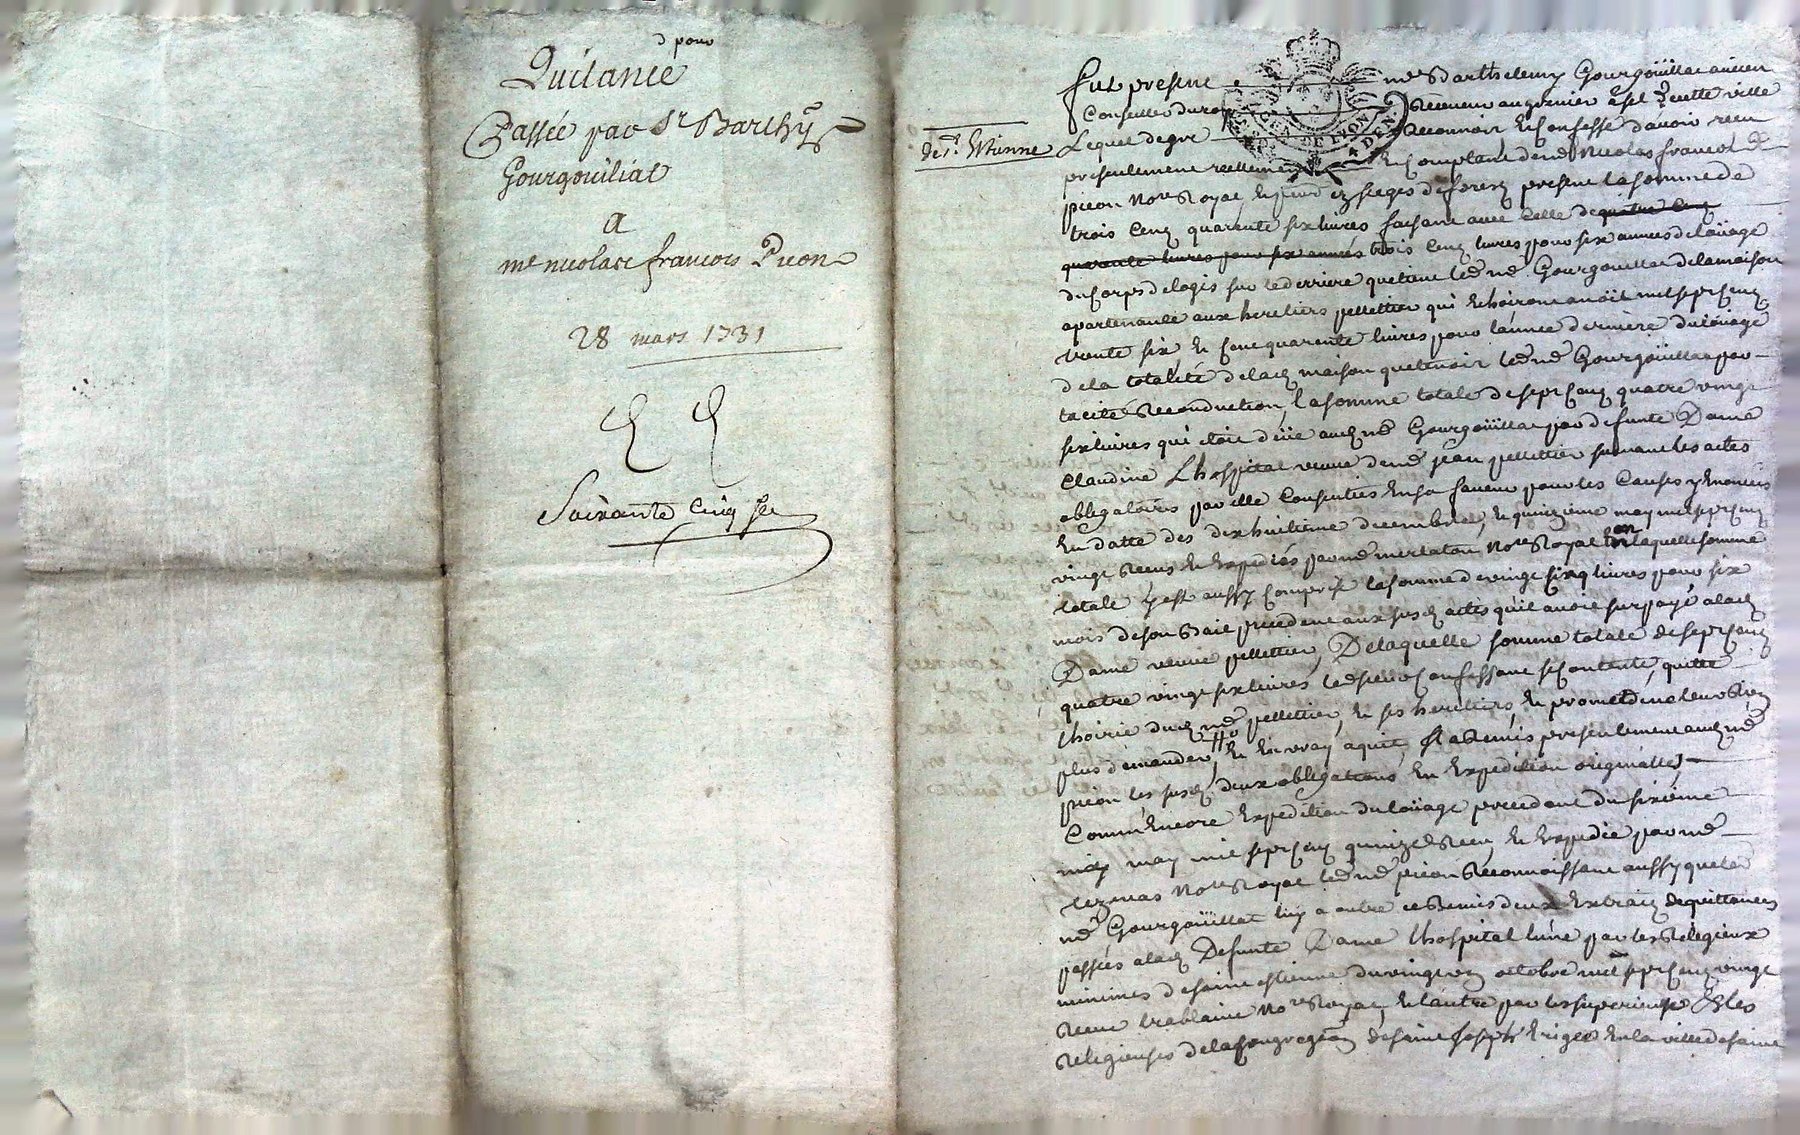 pour
Quitance
Passée par Sr Barthy
Gourgouiliat
a
me nicolas francois Picon
28 mars 1731
Soixante Cinq
de st Etienne
fut present me Barthelemy Gourgoüillat ancien
Conseiller du roy Receveur au grenier a sel de cette ville
Lequel de gre Reconnoit et Confesse d'avoir receu
presentement reellement et Comptant de me Nicolas francois
picon Nore Royal, es sieges de forest present la somme de
trois Cent quarente six livres faisant avec Celle de quatre Cent
quarente livres pour six années trois Cent livres pour six années de loüage
du Corps de logis sur le derriere que tient led me Gourgouillat de la maison
apartenante aux heretiers pellettier qui Echoiront mil sept Cent
trente six et Cent quarente livres pour l'année derniere du loüage
de la totalité de lad maison que tenoit led me Gourgoüillat par
tacite Reconduction, la somme totale de sept Cent quatre vingt
six livres qui etoit deüe aud me Gourgoüillat par defunte Dame
Claudine Lhospital veuve de me jean pellettier suivant les actes
obligatoires par elle Consenties En sa faveur pour les Causes y Enoncées
En datte des dix huitieme decembre, et quinzieme may mil sept Cent
vingt et Expediés par me Nore Royal En laquelle somme
totale y est aussy Comprise la somme de vingt Cinq livres pour six
mois de son Bail precedent aux susd actes qu'il avoit surpayé a lad
Dame veuve pellettier, De laquelle somme totale de sept Cent
quatre vingt six livres led sieur Confessant se Contente, quitte
lhoirie dud me pellettier, et ses heretiers et promet de ne leur Rien
plus demander, et En vray aquit, A Remis presentement aud me
picon les susd deux obligations En Expedition originalles
Comm'Encore Expedition du loüage precedent du sixieme
may mil sept Cent quinze Receu et Expedié par me
Nore Royal led me picon Reconnoissant aussy que led
me Gourgoüillat luy a outre ce Remis deux Extraits de quittances
passées a lad Defunte Dame lhospital lune par les Religieux
minimes de saint estienne du vingt octobre mil sept Cent vingt
Receu Nore Royal, et lautre par les superieure & les
Religieuses de la Congregaon de saint Joseph Erigée En la ville de saint